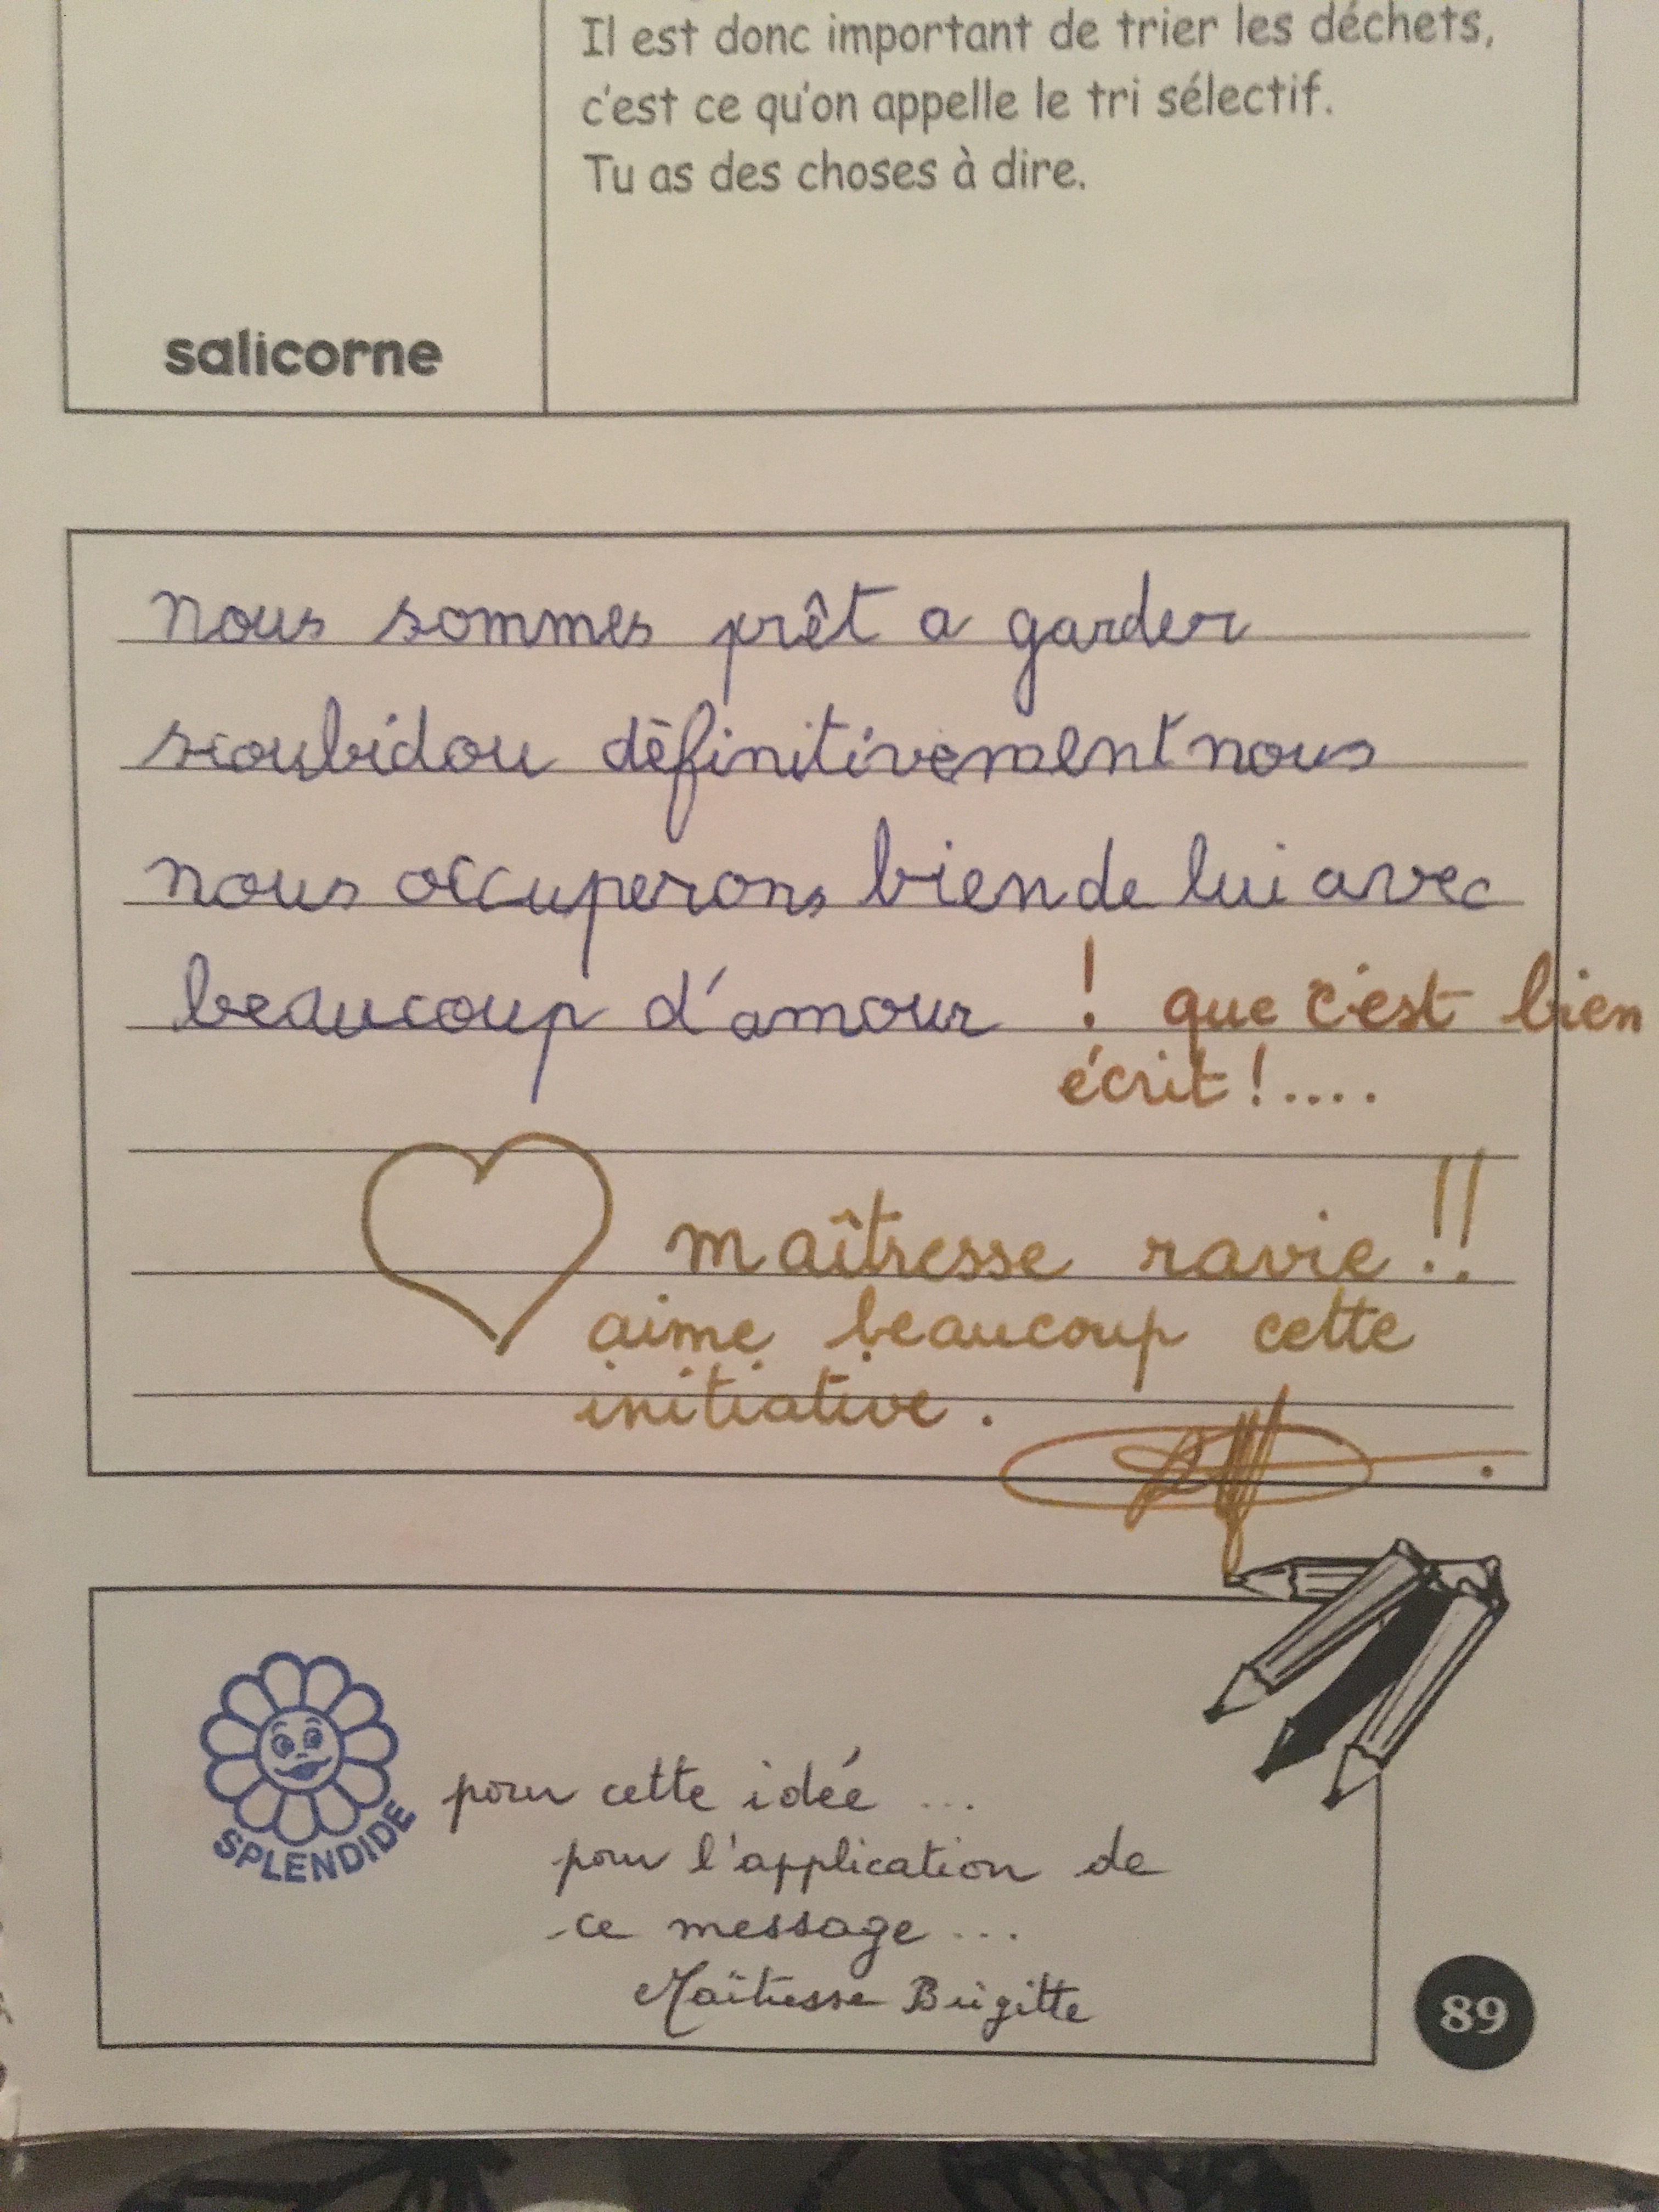 Il est donc important de trier les déchets,
c'est ce qu'on appelle le tri sélectif.
Tu as des choses à dire.
salicorne
nous sommes prêt a garder
scoubidou définitivement nous
nous occuperons bien de lui avec
beaucoup d'amour ! que c'est bien
écrit !....
maîtresse ravie !!
aime beaucoup cette
initiative.
SPLENDIDE
pour cette idée ...
pour l'application de
ce message ...
Maîtresse Brigitte
89